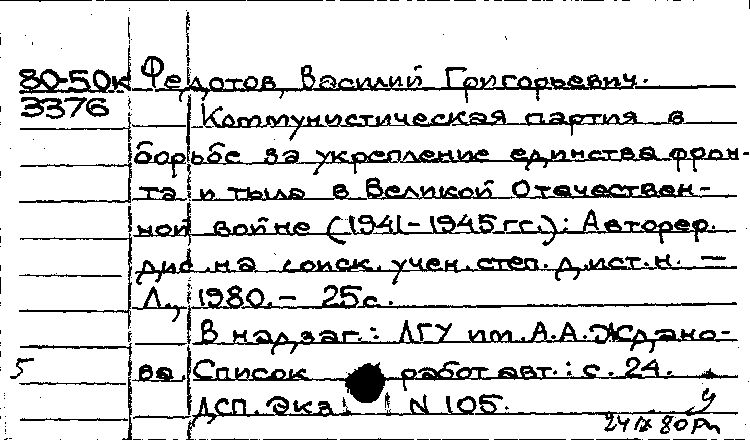 80-50к Федотов, Василий Григорьевич.
3376 Коммунистическая партия в
борьбе за укрепление единства фрон-
та и тыла в Великой Отечествен-
ной войне (1941-1945 гг.): Авторер.
дис. на соиск. учен. степ. д. ист. н. —
Л., 1980. - 25 с.
В надзаг.: ЛГУ им. А.А. Ждано-
5 ва. Список работ авт.: с. 24.
ДСП. Экз. N 105.